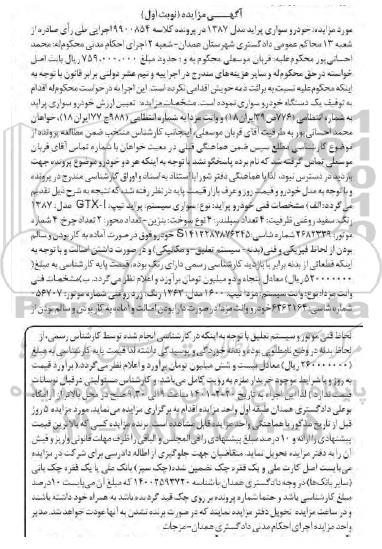 آگهـــی مزایده (نوبت اول)
مورد مزایده: خودرو سواری پراید مدل ۱۳۸۷ در پرونده کلاسه ۱۹۹۰۰۸۵۴ اجرایی طی رأی صادره از
شعبه ۱۳ محاکم عمومی دادگستری شهرستان همدان-شعبه ۲ اجرای احکام مدنی محکوم‌له: محمد
احسانی پور محکوم‌علیه: قربان موسعلی محکوم به و : حدود مبلغ ۷۵۹.۰۰۰.۰۰۰ ریال بابت اصل
خواسته در حق محکوم‌له و سایر هزینه‌های مندرج در اجراییه و نیم عشر دولتی برابر قانون با توجه به
اینکه محکوم‌علیه نسبت به برائت ذمه خویش اقدامی نکرده است. این اجرا به درخواست محکوم‌له اقدام
به توقیف یک دستگاه خودرو سواری نموده است. مشخصات مزایده: تعیین ارزش خودرو سواری پراید
به شماره انتظامی (۷۷۶ص۳۹ ایران۱۸) و وانت مزدا به شماره انتظامی (۹۸۸ج۷۷ ایران۱۸)، خواهان
محمد احسانی پور به طرفیت آقای قربان موسعلی، اینجانب کارشناس منتخب ضمن مطالعه پرونده از
موضوع کارشناسی مطلع سپس ضمن هماهنگی قبلی در معیت خواهان با شماره تماس آقای قربان
موسعلی تماس گرفته شد که نام برده پاسخگو نشد با توجه به اینکه هر دو خودرو موضوع پرونده جهت
بازدید در دسترس نبود، لذا با هماهنگی دفتر شورا با استناد به اسناد و اوراق کارشناسی مندرج در پرونده
و با توجه به مدل خودرو و قیمت روز و عرف بازار قیمت پایه در نظر گرفته شد که نتیجه به شرح ذیل تقدیم
می گردد: الف) مشخصات فنی خودرو پراید: نوع: سواری سیستم: پراید تیپ: GTX-I مدل: ۱۳۸۷
رنگ: سفید روغنی ظرفیت: ۴ تعداد سیلندر: ۴ نوع سوخت: بنزین-تعداد محور: ۲ تعداد چرخ: ۴ شماره
موتور: ۲۶۸۲۳۳۹ شماره شاسی: S۱۴۱۲۲۸۷۸۷۶۲۴۵ خودرو فوق در صورت آماده به کار بودن و سالم
بودن از لحاظ فیزیکی و فنی (بدنه- سیستم تعلیق - و مکانیکی) و در صورت داشتن اصالت و با توجه به
اینکه قطعاتی از بدنه برابر با بازدید کارشناسی رسمی دارای رنگ بوده، قیمت پایه کارشناسی به مبلغ(
۵۲۰۰۰۰۰۰۰ ریال) معادل پنجاه و دو میلیون تومان برآورد و اعلام نظر می گردد. ب)مشخصات فنی
وانت مزدا: نوع: وانت سیستم: مزدا تیپ: ۱۶۰۰ مدل: ۱۳۶۳ رنگ: زرد روغنی شماره موتور: ۵۶۷۰۷-
شماره شاسی: ۶۳۶۳۱۶۴ خودرو وانت مزدا در صورت دارا بودن اصالت و آماده به کار بودن و سالم بودن از
لحاظ فنی موتور و سیستم تعلیق با توجه به اینکه در کارشناسی انجام شده توسط کارشناس رسمی، از
لحاظ بدنه در وضع نامطلوبی بوده و بدنه خوردگی و پوسیدگی داشته لذا قیمت پایه کارشناسی به مبلغ
(۲۶۰۰۰۰۰۰۰ ریال) معادل بیست و شش میلیون تومان برآورد و اعلام نظر می گردد.( برآورد قیمت
به روز و با شرایط موجود خریدار ملزم به رویت کامل می باشد و کارشناس مسئولیتی در قبال نوسانات
قیمت ندارد) لذا این اجراء به تاریخ ۱۴۰۱-۰۲-۲۰ ساعت ۹ الی ۹:۳۰ صبح در محل تالار، از آرامگاه
بوعلی دادگستری همدان طبقه اول واحد مزایده اقدام به برگزاری مزایده می نماید. مورد مزایده ۵ روز
قبل از تاریخ مذکور با هماهنگی واحد مزایده قابل مشاهده است. برنده مزایده کسی که بالاترین قیمت
پیشنهادی را ارائه و ۱۰ درصد مبلغ پیشنهادی را فی المجلس و الباقی را ظرف مهلت قانونی واریز و فیش
آن را به دفتر مزایده تحویل نماید. متقاضیان جهت جلوگیری از اطاله دادرسی برای شرکت در مزایده
می بایست اصل کارت ملی و یک فقره چک تضمین شده (چک سبز) بانک ملی یا یک فقره چک بانکی
(سایر بانک‌ها) در وجه دادگستری همدان باشناسه ۱۴۰۰۲۵۹۳۷۲۰ که مبلغ آن می بایست ۱۰ درصد
مبلغ کارشناسی باشد و حتما شماره پرونده بر روی چک قید گردیده باشد به همراه خود داشته باشند
و در ساعت مزایده تحویل دفتر مزایده نمایند که در صورت برنده نشدن به آنها عودت خواهد شد. مدیر
واحد مزایده اجرای احکام مدنی دادگستری همدان-مرجات